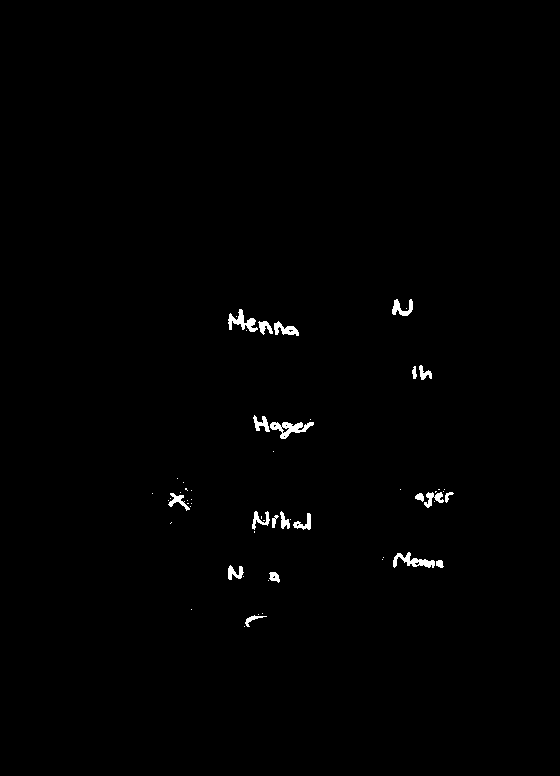 Menna N
ih
Hager
x ager
Nihal
Menna
N a